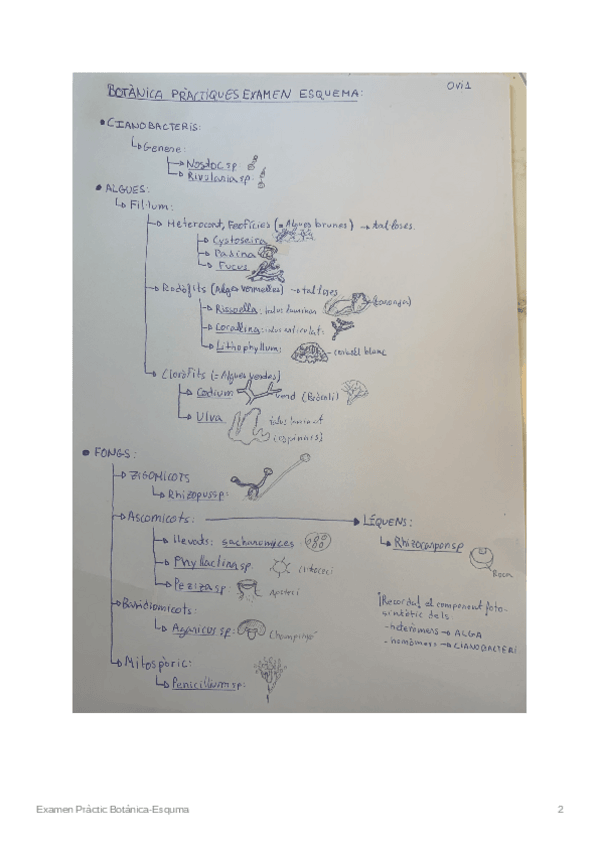 BOTÀNICA PRÀCTIQUES EXAMEN ESQUEMA:
• CIANOBACTERIS:
Genere:
Nostoc sp
Rivularia sp
• ALGUES:
Fil·lum:
Heterocont, Feofícies (= Algues brunes) → tal·loses
Cystoseira
Padina
Fucus
Rodòfits (Algues vermelles) → tal·loses
Rissoella: talus laminar
Corallina: talus articulat
Lithophyllum: - coixell blanc
Cloròfits (= Algues verdes)
Codium verd
Ulva talus
• FONGS:
ZIGOMICOTS
Rhizopus sp:
Ascomicots: → LÍQUENS:
Rhizocarpon sp
Roca
llevats: saccharomyces
Phyllactinia sp.
Peziza sp Apoteci
¡Recorda! el component foto-
sintètic dels
- heteròmers → ALGA
- homòmers → CIANOBACTERI
Basidiomicots:
Agaricus sp:
Mitospòric:
Penicillium sp:
Examen Práctic Botànica-Esquma 2